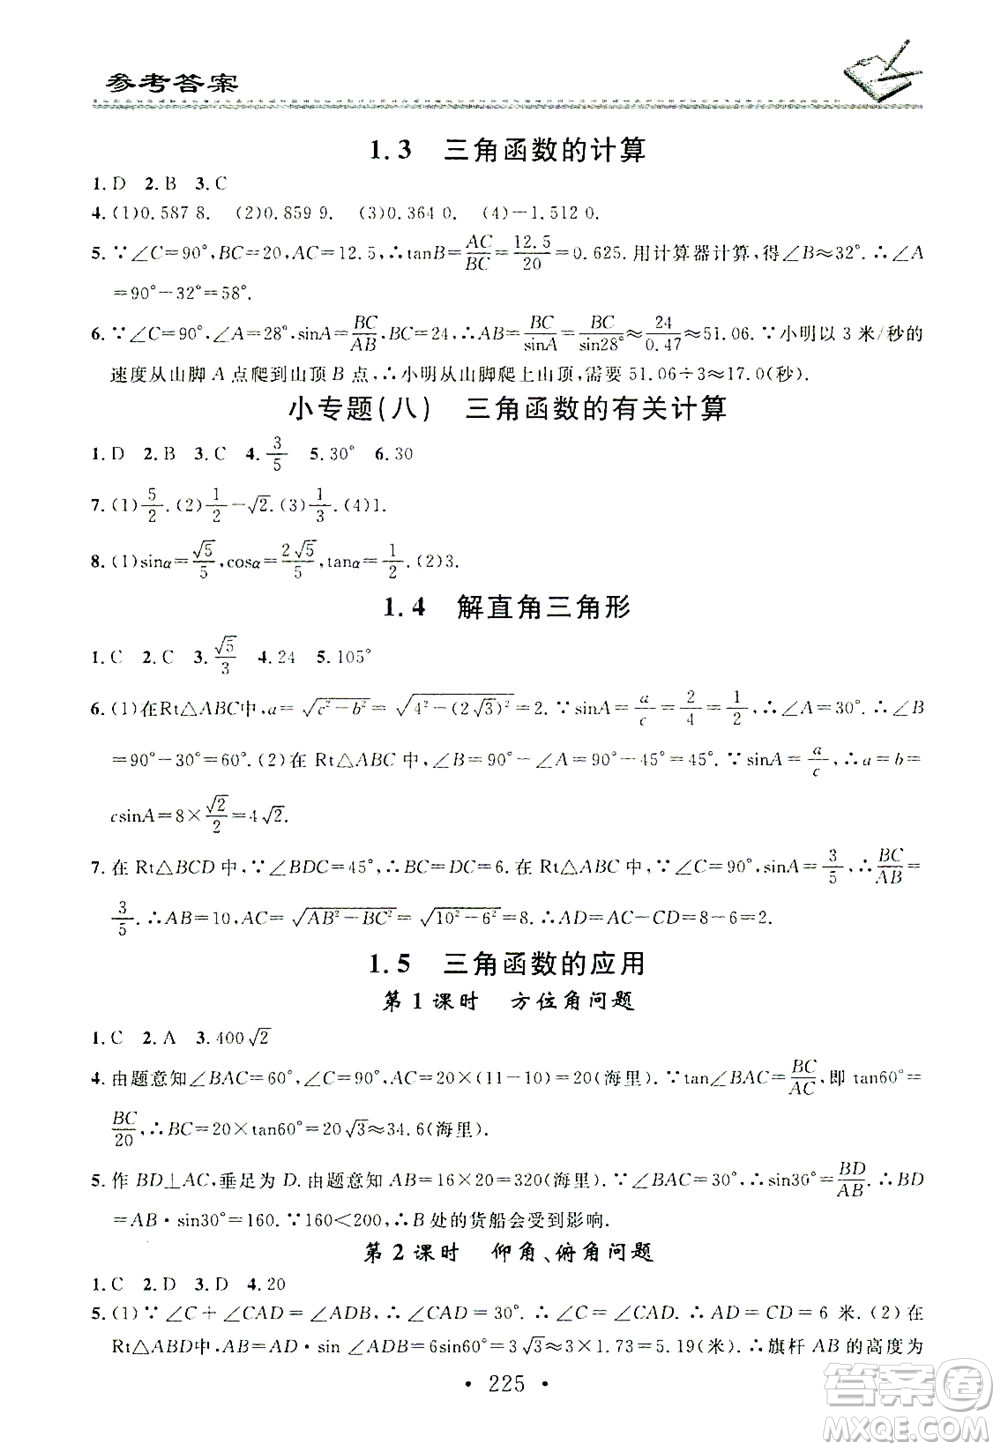 参考答案
1.3 三角函数的计算
1. D 2. B 3. C
4. (1)0.587 8. (2)0.859 9. (3)0.364 0. (4)−1.512 0.
5. ∵∠C=90°,BC=20,AC=12.5,∴tanB=AC/BC=12.5/20=0.625.用计算器计算,得∠B≈32°.∴∠A
=90°−32°=58°.
6. ∵∠C=90°,∠A=28°,sinA=BC/AB,BC=24,∴AB=BC/sinA=BC/sin28°≈24/0.47≈51.06.∵小明以 3 米/秒的
速度从山脚 A 点爬到山顶 B 点,∴小明从山脚爬上山顶,需要 51.06÷3≈17.0(秒).
小专题(八) 三角函数的有关计算
1. D 2. B 3. C 4. 3/5 5. 30° 6. 30
7. (1)5/2. (2)1/2−√2. (3)1/3. (4)1.
8. (1)sinα=√5/5,cosα=2√5/5,tanα=1/2. (2)3.
1.4 解直角三角形
1. C 2. C 3. √5/3 4. 24 5. 105°
6. (1)在Rt△ABC中,a=√(c²−b²)=√(4²−(2√3)²)=2.∵sinA=a/c=2/4=1/2,∴∠A=30°.∴∠B
=90°−30°=60°. (2)在 Rt△ABC 中,∠B=90°−∠A=90°−45°=45°.∵sinA=a/c,∴a=b=
csinA=8×√2/2=4√2.
7. 在 Rt△BCD 中,∵∠BDC=45°,∴BC=DC=6.在 Rt△ABC 中,∵∠C=90°,sinA=3/5,∴BC/AB=
3/5.∴AB=10,AC=√(AB²−BC²)=√(10²−6²)=8.∴AD=AC−CD=8−6=2.
1.5 三角函数的应用
第1课时 方位角问题
1. C 2. A 3. 400√2
4. 由题意知∠BAC=60°,∠C=90°,AC=20×(11−10)=20(海里).∵tan∠BAC=BC/AC,即 tan60°=
BC/20,∴BC=20×tan60°=20√3≈34.6(海里).
5. 作 BD⊥AC,垂足为 D.由题意知 AB=16×20=320(海里).∵∠BAC=30°,∴sin∠BAC=BD/AB.∴BD
=AB·sin30°=160.∵160<200,∴B 处的货船会受到影响.
第2课时 仰角、俯角问题
1. C 2. D 3. D 4. 20
5. (1)∵∠C+∠CAD=∠ADB,∴∠CAD=30°.∴∠C=∠CAD.∴AD=CD=6 米. (2)在
Rt△ABD 中,AB=AD·sin∠ADB=6sin60°=3√3≈3×1.73=5.19(米).∴旗杆 AB 的高度为
· 225 ·
答案圈
MXQE.COM